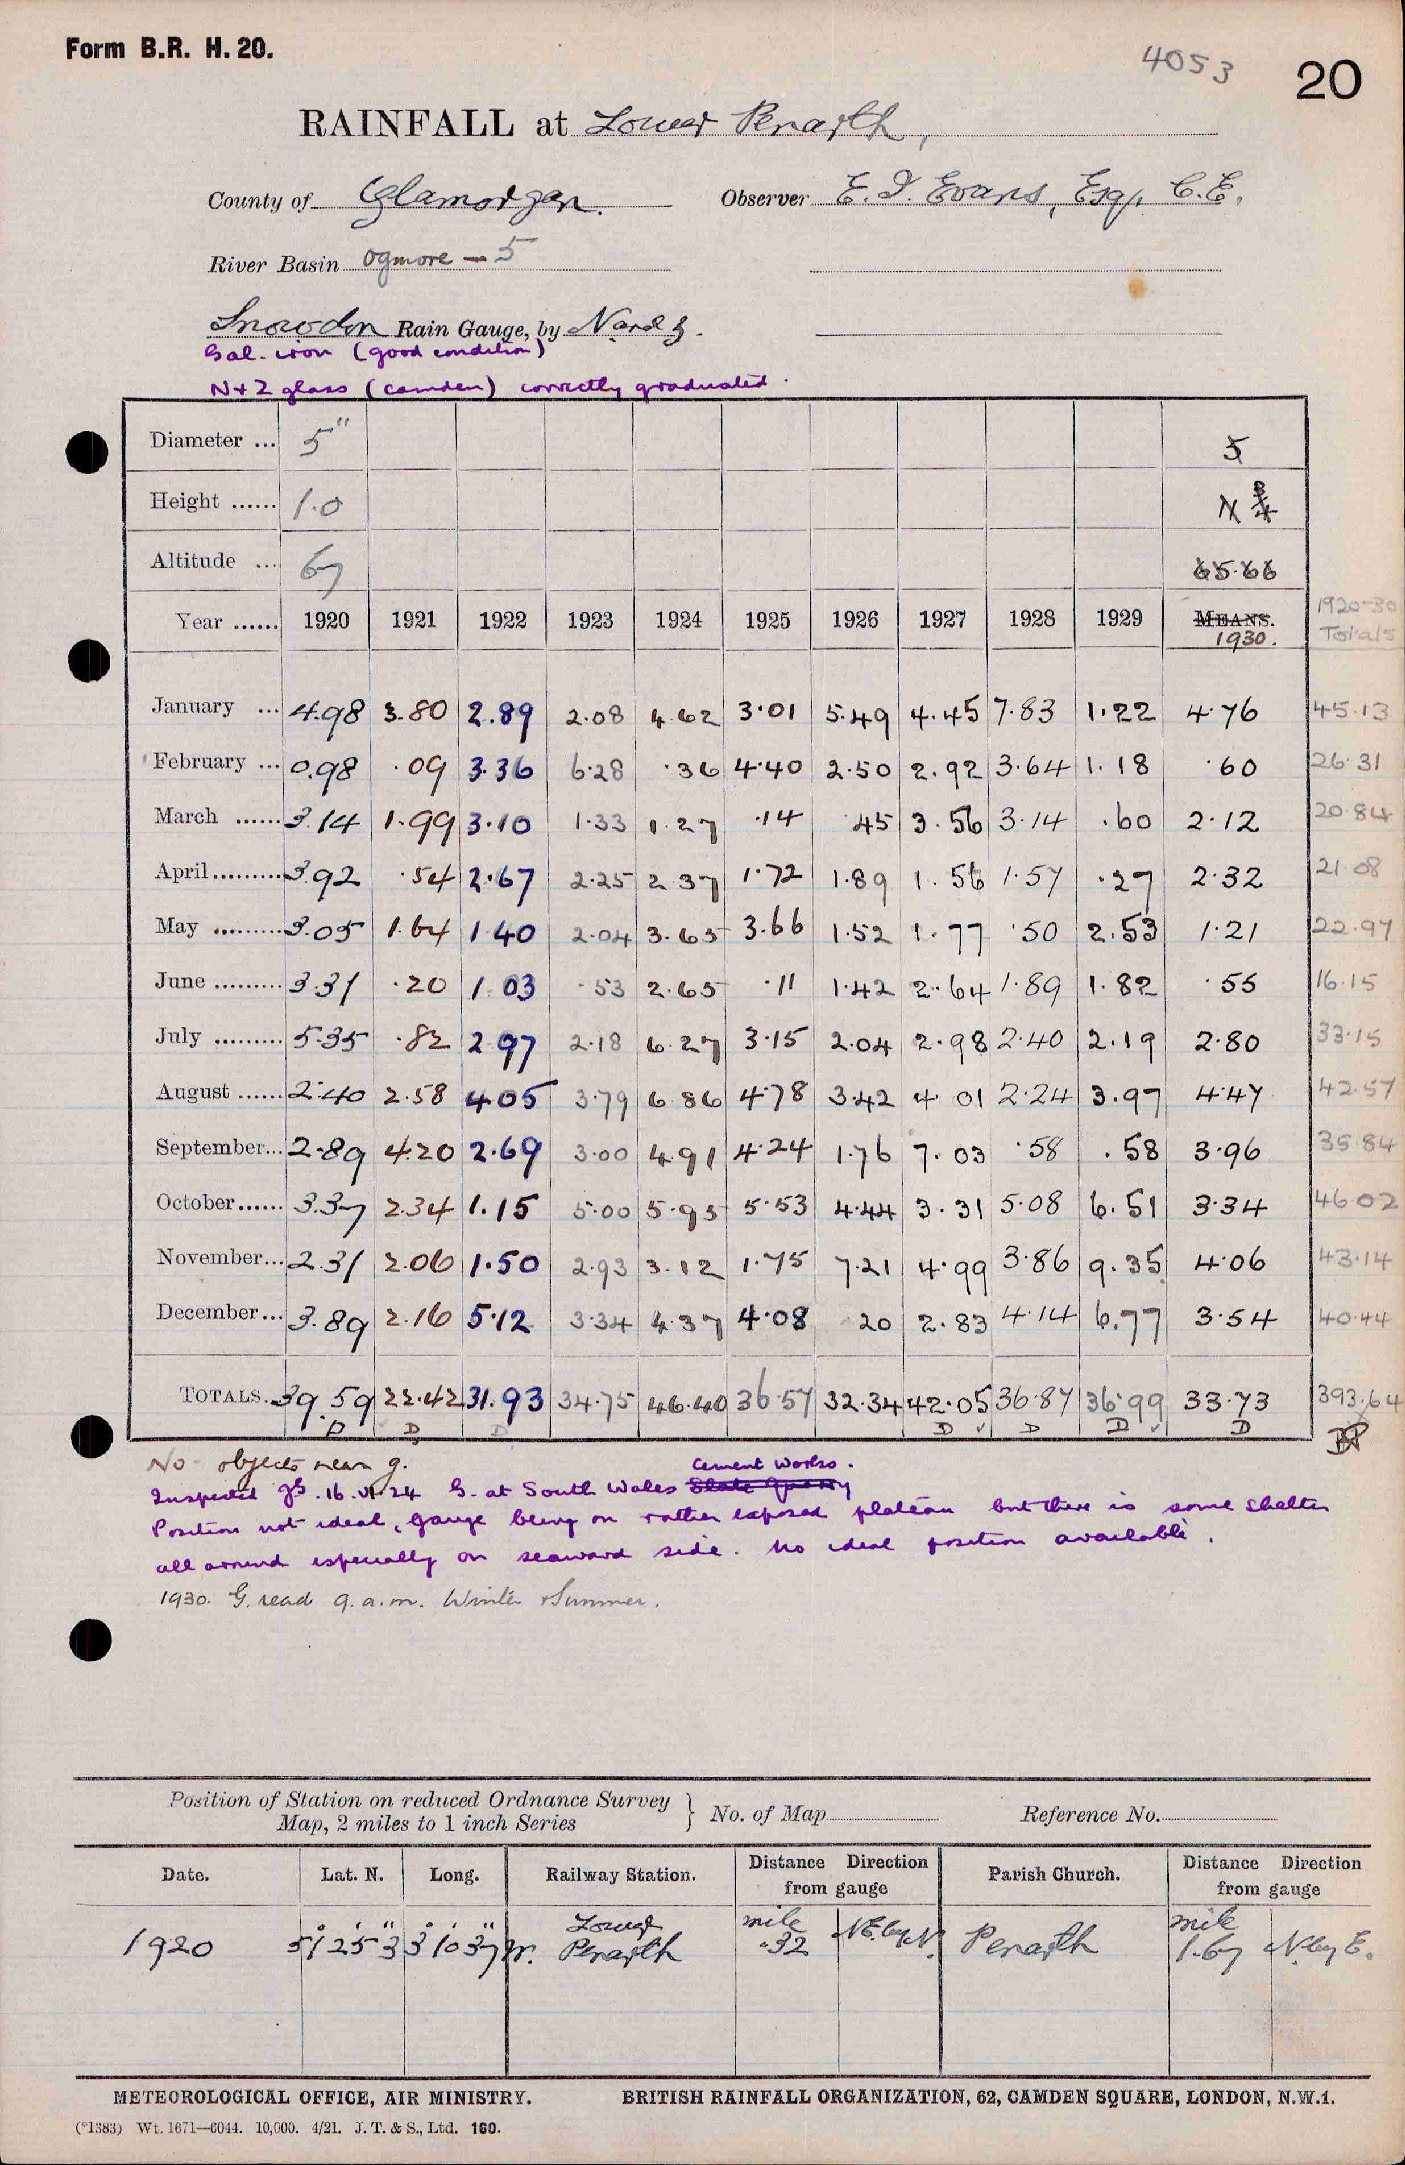 Form B.R. H. 20.
4053
20
RAINFALL at Lower Penarth,
County of Glamorgan. Observer E. I. Evans, Esq., C.E.
River Basin Ogmore — 5
Snowdon Rain Gauge, by N and Z.
Gal. iron (good condition)
N + Z glass (Camden) correctly graduated.
Diameter ... 5" 5
Height ...... 1.0
Altitude ... 67 65.66
1920-30
Year ...... 1920 1921 1922 1923 1924 1925 1926 1927 1928 1929 MEANS. Totals
1930.
January ... 4.98 3.80 2.89 2.08 4.62 3.01 5.49 4.45 7.83 1.22 4.76 45.13
February ... 0.98 .09 3.36 6.28 .36 4.40 2.50 2.92 3.64 1.18 .60 26.31
March ...... 3.14 1.99 3.10 1.33 1.27 .14 .45 3.56 3.14 .60 2.12 20.84
April......... 3.92 .54 2.67 2.25 2.37 1.72 1.89 1.56 1.57 .27 2.32 21.08
May ......... 3.05 1.64 1.40 2.04 3.65 3.66 1.52 1.77 .50 2.53 1.21 22.97
June ......... 3.31 .20 1.03 .53 2.65 .11 1.42 2.64 1.89 1.82 .55 16.15
July ......... 5.35 .82 2.97 2.18 6.27 3.15 2.04 2.98 2.40 2.19 2.80 33.15
August ...... 2.40 2.58 4.05 3.79 6.86 4.78 3.42 4.01 2.24 3.97 4.47 42.57
September... 2.89 4.20 2.69 3.00 4.91 4.24 1.76 7.03 .58 .58 3.96 35.84
October...... 3.37 2.34 1.15 5.00 5.95 5.53 4.44 3.31 5.08 6.51 3.34 46.02
November... 2.31 2.06 1.50 2.93 3.12 1.75 7.21 4.99 3.86 9.35 4.06 43.14
December... 3.89 2.16 5.12 3.34 4.37 4.08 .20 2.83 4.14 6.77 3.54 40.44
TOTALS. 39.59 22.42 31.93 34.75 46.40 36.57 32.34 42.05 36.87 36.99 33.73 393.64
D D D D ✓ D D ✓ D
No objects near g.
Cement Works.
Inspected 16.VI.24 G. at South Wales Slate Quarry
Position not ideal, gauge being on rather exposed plateau but there is some shelter
all around especially on seaward side. No ideal position available.
1930. G. read 9 a.m. Winter & Summer.
Position of Station on reduced Ordnance Survey
Map, 2 miles to 1 inch Series } No. of Map Reference No.
Date. Lat. N. Long. Railway Station. Distance Direction from gauge Parish Church. Distance Direction from gauge
1920 51° 25' 3" 3° 10' 37" W. Lower Penarth mile .32 N.E. by N. Penarth mile 1.67 N. by E.
METEOROLOGICAL OFFICE, AIR MINISTRY. BRITISH RAINFALL ORGANIZATION, 62, CAMDEN SQUARE, LONDON, N.W.1.
(*1383) Wt. 1671—6044. 10,000. 4/21. J. T. & S., Ltd. 160.